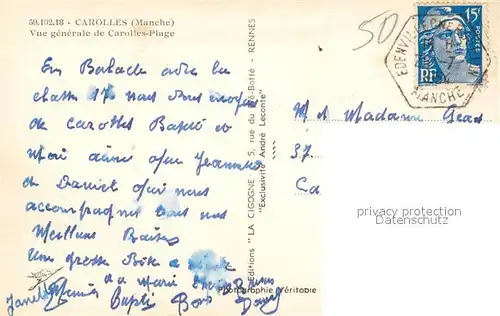 50.192.18 - CAROLLES (Manche)
Vue générale de Carolles-Plage
En Balade avec la
classe 17 nous vous envoyons
de Carolles Bapté et
Moi ainsi que Jeannette
et Daniel qui nous
accompagnent tous nos
Meilleurs Baisers
Une grosse Bise à
Janette
Bapté
Editions "LA CIGOGNE", 5, rue du Pré-Botté - RENNES
"Exclusivité André Leconte"
Photographie Véritable
50
15F
POSTES
RF
EDENVILLE
MANCHE
M et Madame
37
Ca
privacy protection